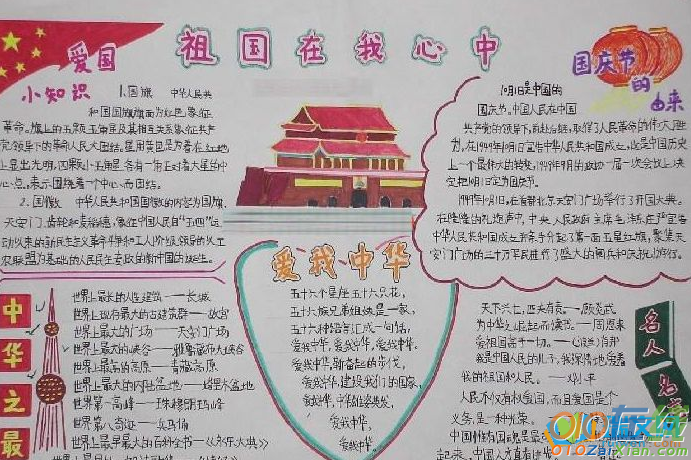 祖国在我心中
爱国
小知识
1.国旗 中华人民共
和国国旗旗面为红色,象征
革命。旗上的五颗五角星及其相互关系象征共产
党领导下的革命人民大团结。星用黄色是为着在红地
上显出光明,四颗小五角星各有一角正对着大星的中
心点,表示围绕着一个中心而团结。
2.国徽 中华人民共和国国徽的内容为国旗、
天安门、齿轮和麦稻穗,象征中国人民自“五四”运
动以来的新民主主义革命斗争和工人阶级领导的以工
农联盟为基础的人民民主专政的新中国的诞生。
国庆节
的
由来
10月1日是中国的
国庆节。中国人民在中国
共产党的领导下,前赴后继,取得了人民革命的伟大胜
利,在1949年10月1日宣告中华人民共和国成立,这是中国历史
上一个最伟大的转变,1949年9月的政协一届一次会议上决
定把10月1日定为国庆节。
1949年10月1日,在首都北京天安门广场举行了开国大典。
在隆隆的礼炮声中,中央人民政府主席毛泽东庄严宣告
中华人民共和国成立并亲手升起了第一面五星红旗,聚集天
安门广场的三十万军民进行了盛大的阅兵和庆祝游行。
中华之最
世界上最长的人造建筑——长城
世界上现存最大的古建筑群——故宫
世界上最大的广场——天安门广场
世界上最大的峡谷——雅鲁藏布大峡谷
世界上最高的高原——青藏高原
世界上最大的内陆盆地——塔里木盆地
世界第一高峰——珠穆朗玛峰
世界第八奇迹——兵马俑
世界上最早最大的百科全书——《永乐大典》
爱我中华
五十六个星座五十六只花,
五十六族兄弟姐妹是一家,
五十六种语言汇成一句话,
爱我中华,爱我中华,爱我中华。
爱我中华,健儿奋起的步伐,
爱我中华,建设我们的国家,
爱我中华,
爱我中华,
爱我中华。
名人名言
天下兴亡,匹夫有责。——顾炎武
为中华之崛起而读书。——周恩来
我是中国人民的儿子,我深情地爱着
我的祖国和人民。——邓小平
人民不仅有权爱国,而且爱国是个
义务,是一种光荣。
010在线
010ZaiXian.com